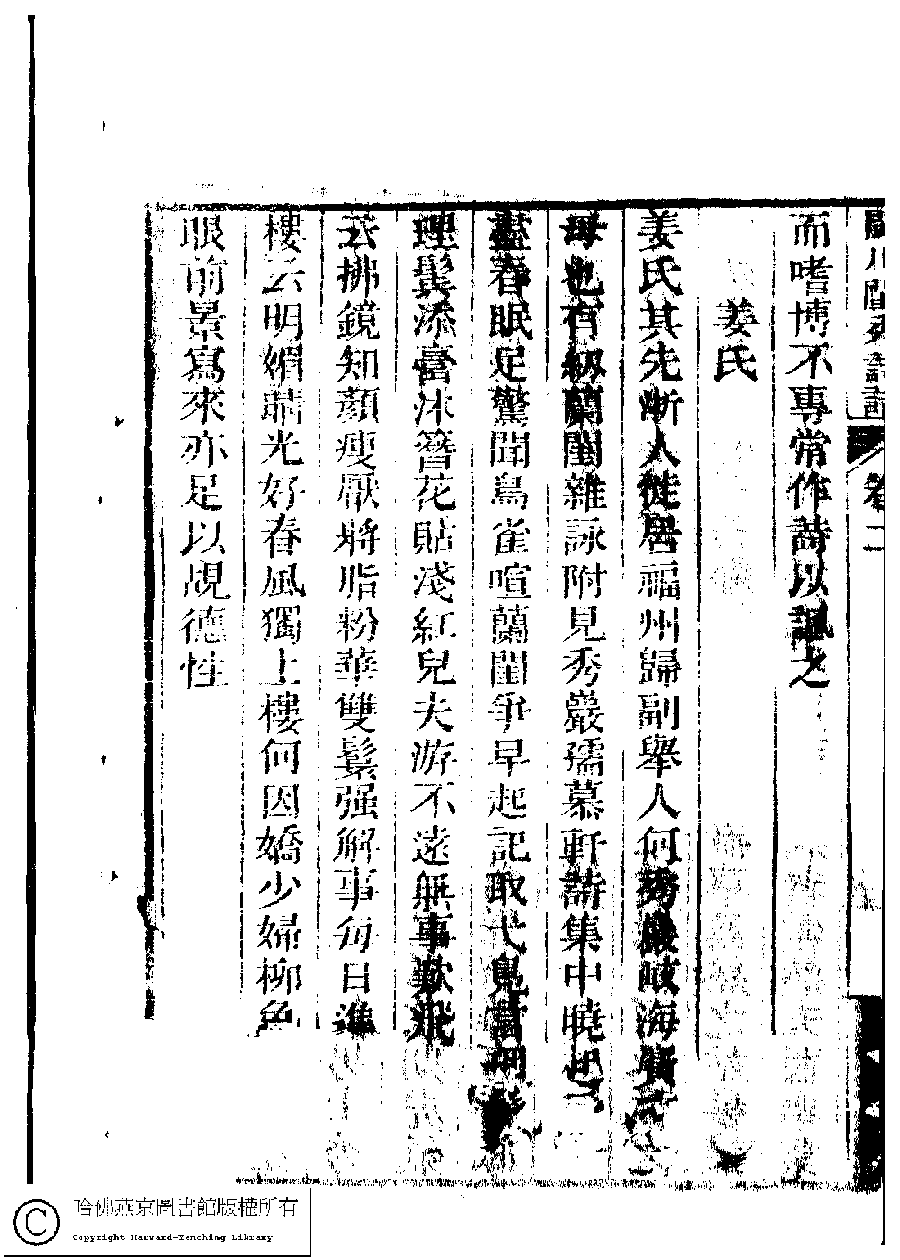 閩川閨秀詩話 卷二
而嗜博不專常作詩以諷之
姜氏
姜氏其先浙人徙居福州歸副舉人何秀巖岐海
母也有紉蘭閨雜詠附見秀巖孺慕軒詩集中曉起云
盡春眠足驚聞鳥雀喧蘭閨爭早起記取弋鳧
理鬢添膏沐簪花貼淺紅兒夫游不遠無事歎飛
云拂鏡知顏瘦厭將脂粉華雙鬟强解事每日進
樓云明媚晴光好春風獨上樓何因嬌少婦柳色
眼前景寫來亦足以覘德性
哈佛燕京圖書館版權所有
Copyright Harvard-Yenching Library